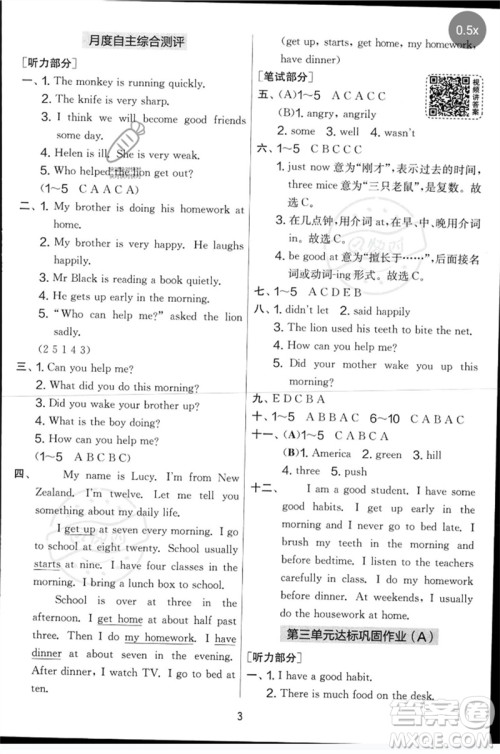 月度自主综合测评
[听力部分]
一、1. The monkey is running quickly.
2. The knife is very sharp.
3. I think we will become good friends
some day.
4. Helen is ill. She is very weak.
5. Who helped the lion get out?
(1～5 C A A C A)
二、1. My brother is doing his homework at
home.
2. My brother is very happy. He laughs
happily.
3. Mr Black is reading a book quietly.
4. He gets up early in the morning.
5. “Who can help me?” asked the lion
sadly.
(2 5 1 4 3)
三、1. Can you help me?
2. What did you do this morning?
3. Did you wake your brother up?
4. What is the boy doing?
5. How can I help you?
(1～5 A B C B C)
四、 My name is Lucy. I'm from New
Zealand. I'm twelve. Let me tell you
something about my daily life.
I get up at seven every morning. I go to
school at eight twenty. School usually
starts at nine. I have four classes in the
morning. I bring a lunch box to school.
School is over at three in the
afternoon. I get home at about four
ten. I do my homework first. I have
dinner at about seven in the evening.
After dinner, I watch TV. I go to bed at
ten.
(get up, starts, get home, my homework,
have dinner)
[笔试部分]
五、(A)1～5 A C A C C
(B)1. angry, angrily
2. some 3. will 4. wasn't
六、1～5 C B C C C
1. just now 意为“刚才”,表过去的时间,
three mice 意为“三只老鼠”,是复数。故
选 C。
3. 在几点钟,用介词 at,在早、中、
晚用介词 in。故选 C。
4. be good at 意为“擅长于……”,后面接
名词或动词-ing 形式。故选 C。
七、1～5 A C D E B
八、1. didn't let 2. said happily
3. The lion used his teeth to bite the net.
4. How can I help you?
5. Did your mother wake you up this
morning?
九、E D C B A
十、1～5 A B B A C 6～10 C A B A C
十一、(A)1～5 A C A B B
(B)1. America 2. green 3. hill
4. three 5. push
十二、 I am a good student. I have some
good habits. I get up early in the
morning. I never go to bed late. I
brush my teeth in the morning and
before bedtime. I listen to the teachers
carefully at school. I do my homework
before dinner. I think we should have
good habits.
第三单元达标巩固作业(A)
[听力部分]
一、1. I have a headache.
2. There is much food on the desk.
3
0.5x
视频讲答案
答案圈
MXQE.COM